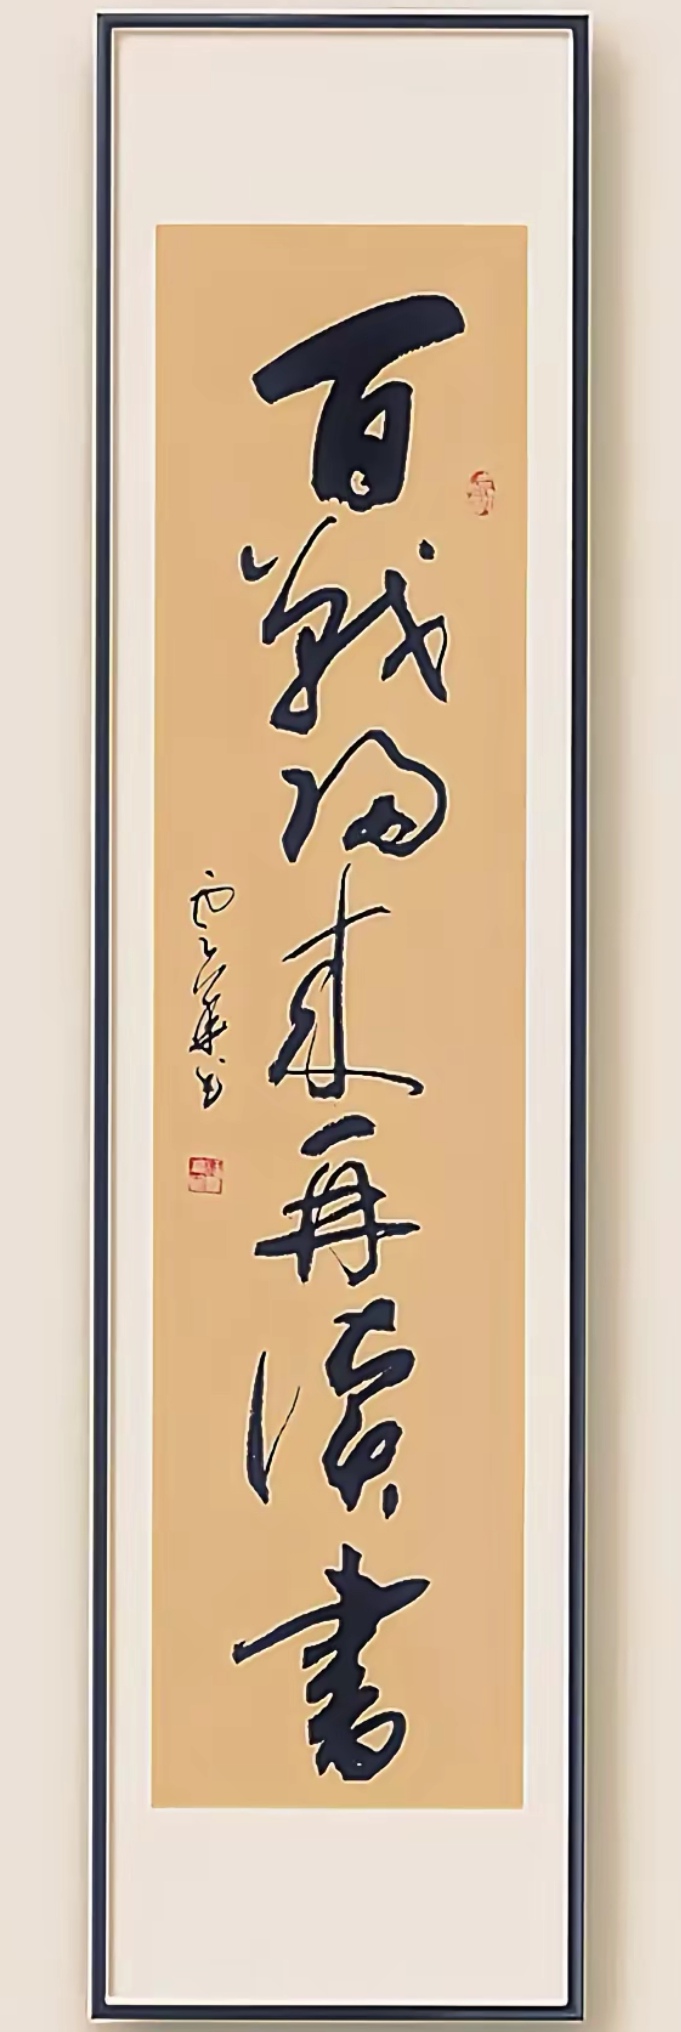 百戰歸來再讀書